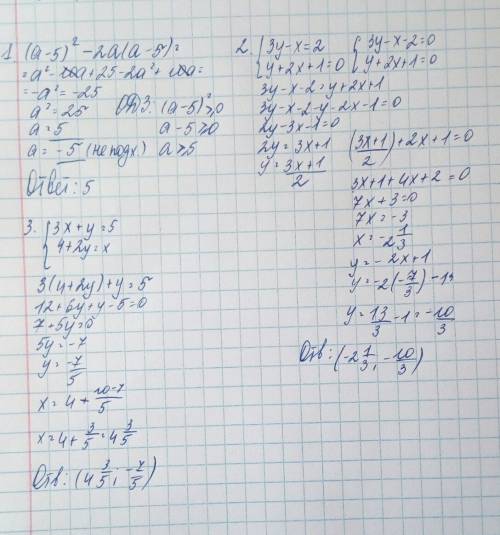 1. (a-5)² - 2a(a-5) =
= a² - 10a + 25 - 2a² + 10a =
= -a² = -25
a² = 25 ОДЗ: (a-5)² ≥ 0
a = 5 a-5 ≥ 0
a = -5 (не подх) a ≥ 5
Ответ: 5
2. { 3y-x=2 { 3y-x-2=0
y+2x+1=0 y+2x+1=0
3y-x-2=y+2x+1
3y-x-2-y-2x-1=0
2y-3x-1=0
2y=3x+1 (3x+1/2)+2x+1=0
y=3x+1/2
3x+1+4x+2=0
7x+3=0
7x=-3
x=-2 1/3
y=-2x+1
y=-2(-7/3)-1
y=13/3-1=-10/3
Отв: (-2 1/3; -10/3)
3. { 3x+y=5
4+2y=x
3(4+2y)+y=5
12+6y+y-5=0
7+5y=0
5y=-7
y=-7/5
x=4+10-7/5
x=4+3/5=4 3/5
Отв: (4 3/5; -7/5)